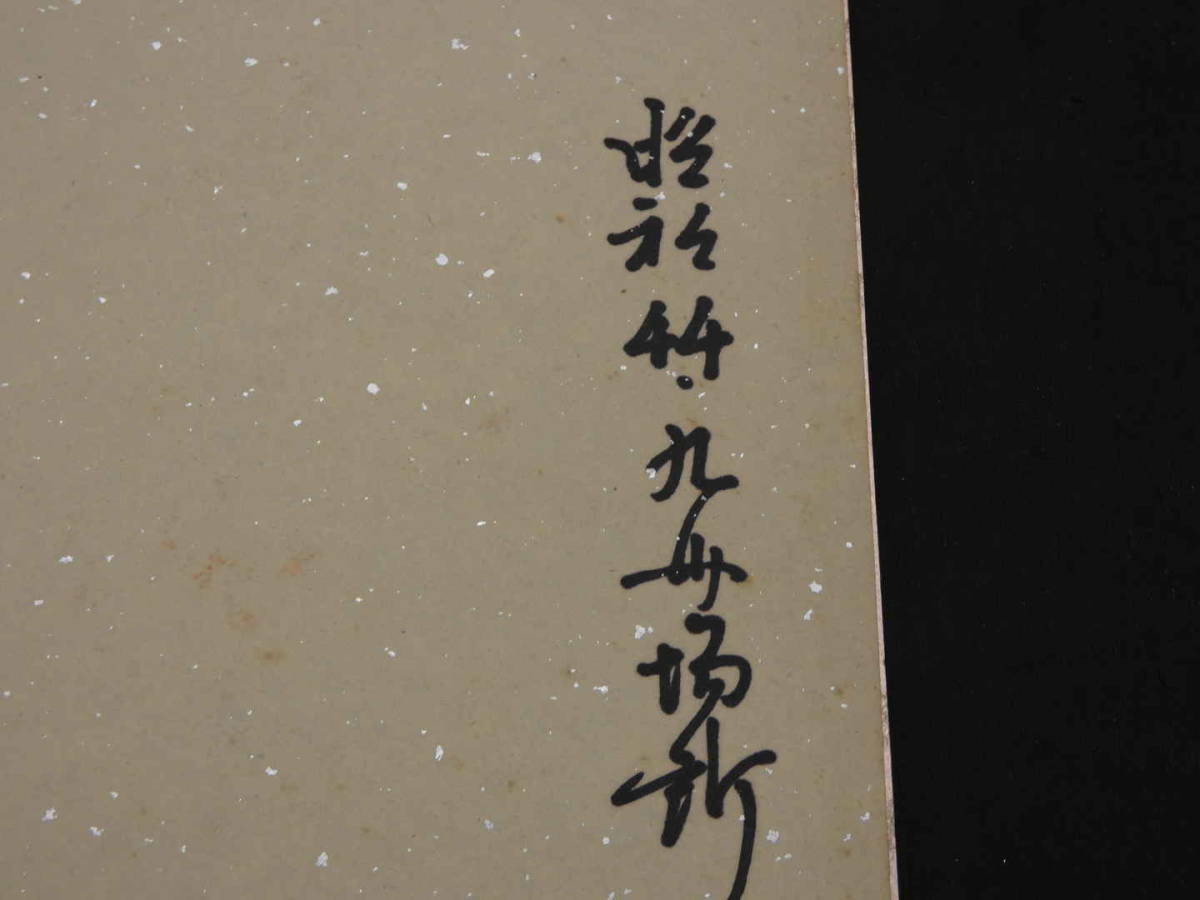 昭和44・九州場所